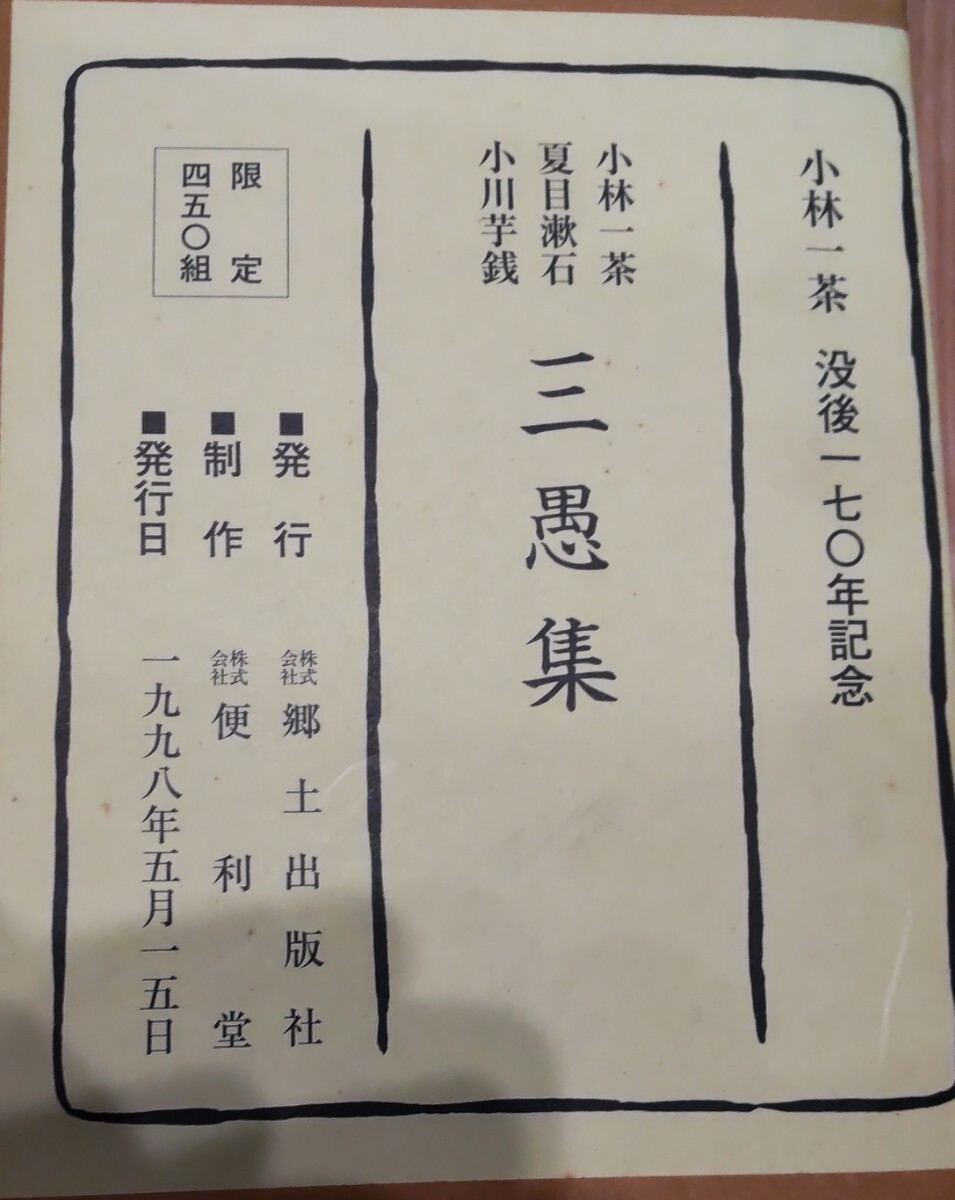 小林一茶 没後一七〇年記念
小林一茶
夏目漱石
小川芋銭
三愚集
限定
四五〇組
■発行 株式会社 郷土出版社
■制作 株式会社 便利堂
■発行日 一九九八年五月一五日